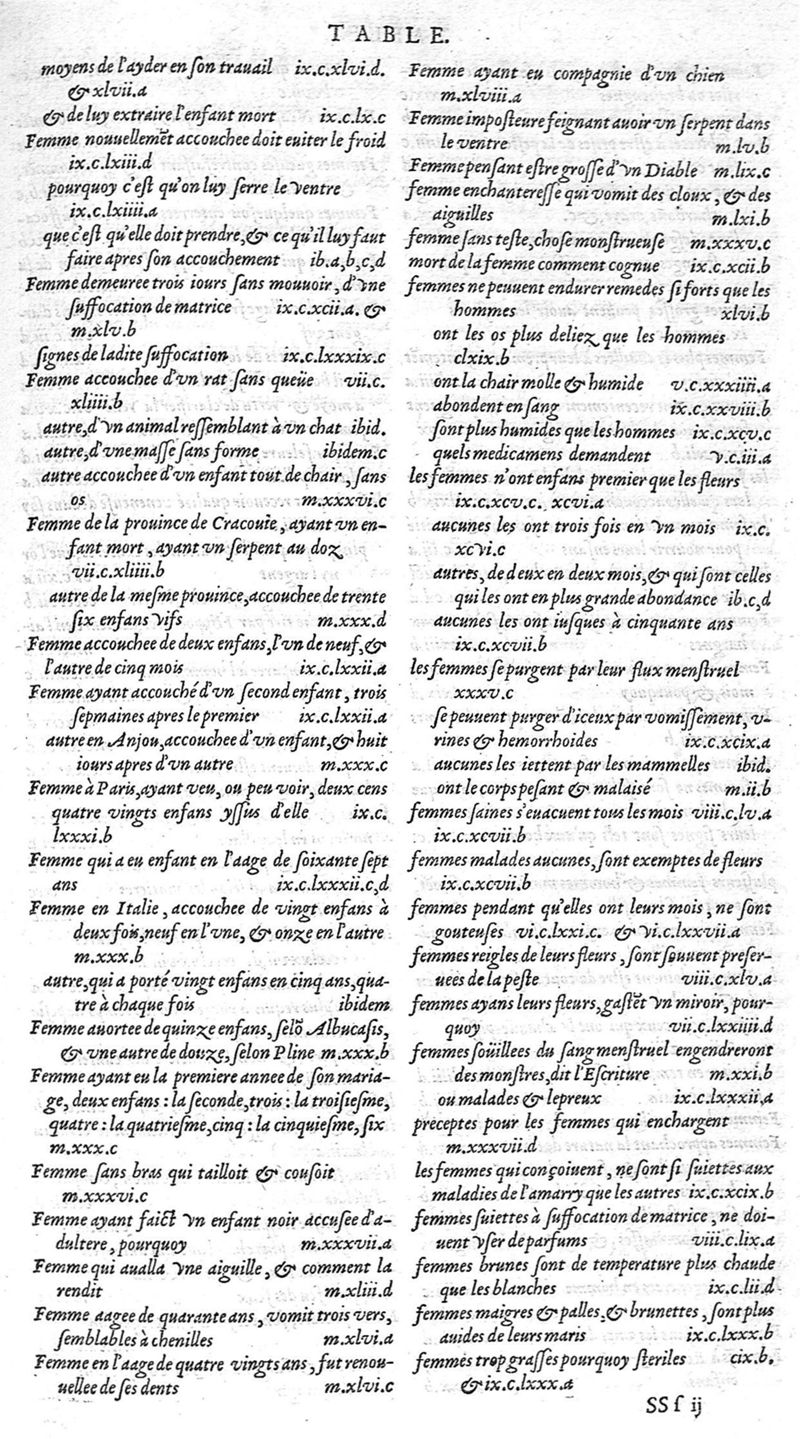 TABLE.
moyens de l'ayder en ſon trauail ix.c.xlvi.d.
& xlvii.a
& de luy extraire l'enfant mort ix.c.lx.c
Femme nouuellemẽt accouchee doit euiter le froid
ix.c.lxiii.d
pourquoy c'eſt qu'on luy ſerre le ventre
ix.c.lxiiii.a
que c'eſt qu'elle doit prendre, & ce qu'il luy faut
faire apres ſon accouchement ib.a,b,c,d
Femme demeuree trois iours ſans mouuoir, d'vne
ſuffocation de matrice ix.c.xcii.a. &
m.xlv.b
ſignes de ladite ſuffocation ix.c.lxxxix.c
Femme accouchee d'vn rat ſans queüe vii.c.
xliiii.b
autre, d'vn animal reſſemblant à vn chat ibid.
autre, d'vne maſſe ſans forme ibidem.c
autre accouchee d'vn enfant tout de chair, ſans
os m.xxxvi.c
Femme de la prouince de Cracouïe, ayant vn en-
fant mort, ayant vn ſerpent au doz
vii.c.xliiii.b
autre de la meſme prouince, accouchee de trente
ſix enfans vifs m.xxx.d
Femme accouchee de deux enfans, l'vn de neuf, &
l'autre de cinq mois ix.c.lxxii.a
Femme ayant accouché d'vn ſecond enfant, trois
ſepmaines apres le premier ix.c.lxxii.a
autre en Anjou, accouchee d'vn enfant, & huit
iours apres d'vn autre m.xxx.c
Femme à Paris, ayant veu, ou peu voir, deux cens
quatre vingts enfans yſſus d'elle ix.c.
lxxxi.b
Femme qui a eu enfant en l'aage de ſoixante ſept
ans ix.c.lxxxii.c,d
Femme en Italie, accouchee de vingt enfans à
deux fois, neuf en l'vne, & onze en l'autre
m.xxx.b
autre, qui a porté vingt enfans en cinq ans, qua-
tre à chaque fois ibidem
Femme auortee de quinze enfans, ſelõ Albucaſis,
& vne autre de douze, ſelon Pline m.xxx.b
Femme ayant eu la premiere annee de ſon maria-
ge, deux enfans : la ſeconde, trois : la troiſieſme,
quatre : la quatrieſme, cinq : la cinquieſme, ſix
m.xxx.c
Femme ſans bras qui tailloit & couſoit
m.xxxvi.c
Femme ayant faict vn enfant noir accuſee d'a-
dultere, pourquoy m.xxxvii.a
Femme qui aualla vne aiguille, & comment la
rendit m.xliii.d
Femme aagee de quarante ans, vomit trois vers,
ſemblables à chenilles m.xlvi.a
Femme en l'aage de quatre vingts ans, fut renou-
uellee de ſes dents m.xlvi.c
Femme ayant eu compagnie d'vn chien
m.xlviii.a
Femme impoſteure feignant auoir vn ſerpent dans
le ventre m.lv.b
Femme penſant eſtre groſſe d'vn Diable m.lix.c
femme enchantereſſe qui vomit des cloux, & des
aiguilles m.lxi.b
femme ſans teſte, choſe monſtrueuſe m.xxxv.c
mort de la femme comment cognue ix.c.xcii.b
femmes ne peuuent endurer remedes ſi forts que les
hommes xlvi.b
ont les os plus deliez que les hommes
clxix.b
ont la chair molle & humide v.c.xxxiiii.a
abondent en ſang ix.c.xxviii.b
ſont plus humides que les hommes ix.c.xcv.c
quels medicamens demandent v.c.iii.a
les femmes n'ont enfans premier que les fleurs
ix.c.xcv.c. xcvi.a
aucunes les ont trois fois en vn mois ix.c.
xcvi.c
autres, de deux en deux mois, & qui ſont celles
qui les ont en plus grande abondance ib.c,d
aucunes les ont iuſques à cinquante ans
ix.c.xcvii.b
les femmes ſe purgent par leur flux menſtruel
xxxv.c
ſe peuuent purger d'iceux par vomiſſement, v-
rines & hemorrhoides ix.c.xcix.a
aucunes les iettent par les mammelles ibid.
ont le corps peſant & malaisé m.ii.b
femmes ſaines s'euacuent tous les mois viii.c.lv.a
ix.c.xcvii.b
femmes malades aucunes, ſont exemptes de fleurs
ix.c.xcvii.b
femmes pendant qu'elles ont leurs mois, ne ſont
gouteuſes vi.c.lxxi.c. & vi.c.lxxvii.a
femmes reigles de leurs fleurs, ſont ſouuent preſer-
uees de la peſte viii.c.xlv.a
femmes ayans leurs fleurs, gaſtẽt vn miroir, pour-
quoy vii.c.lxxiiii.d
femmes ſoüillees du ſang menſtruel engendreront
des monſtres, dit l'Eſcriture m.xxi.b
ou malades & lepreux ix.c.lxxxii.a
preceptes pour les femmes qui enchargent
m.xxxvii.d
les femmes qui conçoiuent, ne ſont ſi ſuiettes aux
maladies de l'amarry que les autres ix.c.xcix.b
femmes ſuiettes à ſuffocation de matrice, ne doi-
uent vſer de parfums viii.c.lix.a
femmes brunes ſont de temperature plus chaude
que les blanches ix.c.lii.d
femmes maigres & palles, & brunettes, ſont plus
auides de leurs maris ix.c.lxxx.b
femmes trop graſſes pourquoy ſteriles cix.b,
& ix.c.lxxx.a
SS ſ ij